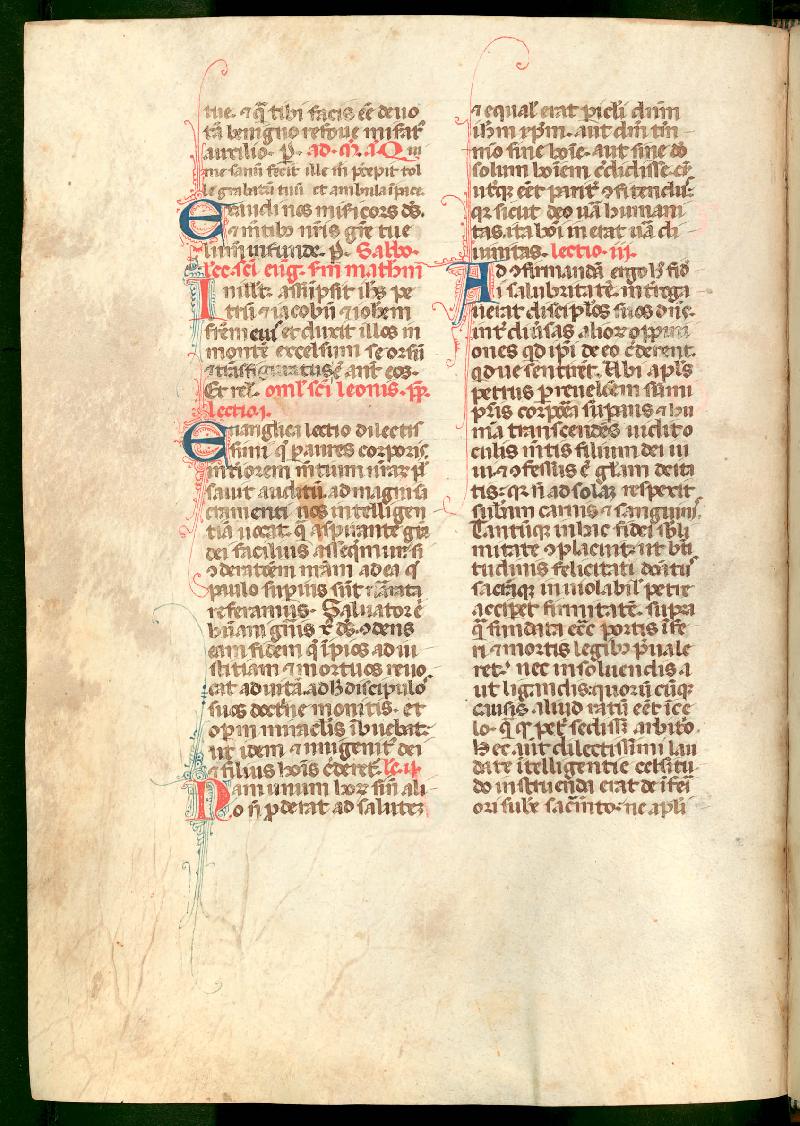 tue. ⁊ q̄ tibi facis eē deuo
tā benigno refoue misat̄
auxilio. P. ad. M. A. Q ui
me sanū fecit ille m̄ p̄cepit tol
le grabatū tuū et ambula ī pace.
Exaudi nos misicors ds̄.
⁊ mētibꝫ nr̄is gr̄e tue
lumē infunde. P. Sabbo.
lec. sci eūg. scdm matheū
In illt̄. assūpsit ihs̄ pe
trū ⁊ iacobū ⁊ iohem
frēm eius et duxit illos in
montē excelsum seorsū
⁊ trāsfiguratus ē ante eos.
Et rel̄. oml̄ sci leonis. pp.
lectio. j.
Euanglica lectio dilectis
simi q̄ p aures corporis
interiorem mētium nrar̄ pl̄
sauit auditū. ad magni sa
cramenti nos intelligen
tiā uocat. q̄ aspirante gr̄a
dei facilius asseqmur. si
ↄsideratōem nr̄am ad ea q̄
paulo supius sūt narrata
referamus. Saluator ē
humani gn̄is xp̄c ds̄. ↄdens
eam fidem q̄ īpios ad iu
stitiam ⁊ mortuos reuo
cat ad uitā. ad h̄ discipulos
suos doctne monitis. et
opm miraclis ībuebat.
ut idem ⁊ unigenit̄ dei
⁊ filius hoīs c̄deret̄. le. ij.
Nam unum hor̄ sin̄ ali
o n̄ pderat ad salutez
⁊ equal̄ erat picli dn̄m
ihm xpm. aut dm̄ tm̄
mō sine hoīe. aut sine dō
solum hoīem c̄didisse. cū
utrūqꝫ eēt parit̄ ↄfitendū.
qꝛ sicut deo uā humani
tas. ita hoi inerat uā di
uinitas. lectio. iij.
Ad ↄfirmandā ergo h̄ fid
ei salubritatē. intēroga
uerat discipl̄os suos dn̄s.
int̄ diūsas alior̄ oppini
ones qd ipi de eo c̄derent.
qdue sentiret̄. Ubi apl̄s
petrus p reuelōem sūmi
pr̄is corpōea supans ⁊ hu
mana transcendēs uidit o
culis mētis filium dei ui
ui. ⁊ ↄfessus ē glam deita
tis. qꝛ n̄ ad solā respexit
sub̄am carnis ⁊ sanguinis.
Tantūqꝫ in hac fidei sbli
mitate ↄplacuit. ut bti
tudinis felicitati donatus
sacrāqꝫ inuiolabil̄ petre
acciperet firmitatē. supra
q̄ fundata ecc̄a portis īfe
ri ⁊ mortis legibꝫ p̄uale
ret. nec in soluendis a
ut ligandis. quorū cūqꝫ
causis. aliud ratū eēt ī ce
lo. q̄ q̄ petri sedisset arbitō.
Hec aut dilectissimi lau
date ītelligentie celsitu
do instruenda erat de īfeī
oris sube sacm̄to. ne apli